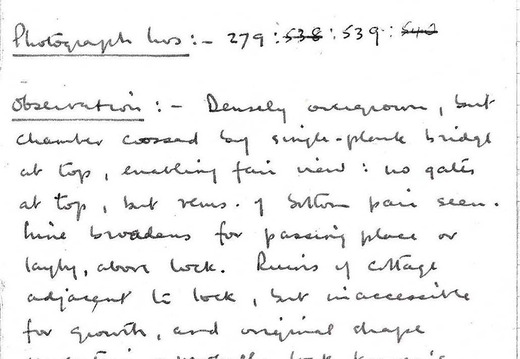 Photograph nos :- 279 : 538 : 539 : 540
Observation :- Densely overgrown, but
chamber crossed by single-plank bridge
at top, enabling fair view : no gates
at top, but rems. of bottom pair seen.
Line broadens for passing place or
layby, above lock. Ruins of cottage
adjacent to lock, but inaccessible
for growth, and original shape